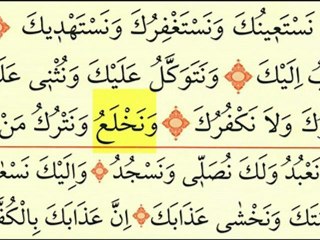 نَسْتَعٖينُكَ وَنَسْتَغْفِرُكَ وَنَسْتَهْدٖيكَ
اِلَيْكَ وَنَتَوَكَّلُ عَلَيْكَ وَنُثْنٖى
وَلَا نَكْفُرُكَ وَنَخْلَعُ وَنَتْرُكُ مَنْ
نَعْبُدُ وَلَكَ نُصَلّٖى وَنَسْجُدُ وَاِلَيْكَ
وَنَخْشٰى عَذَابَكَ اِنَّ عَذَابَكَ